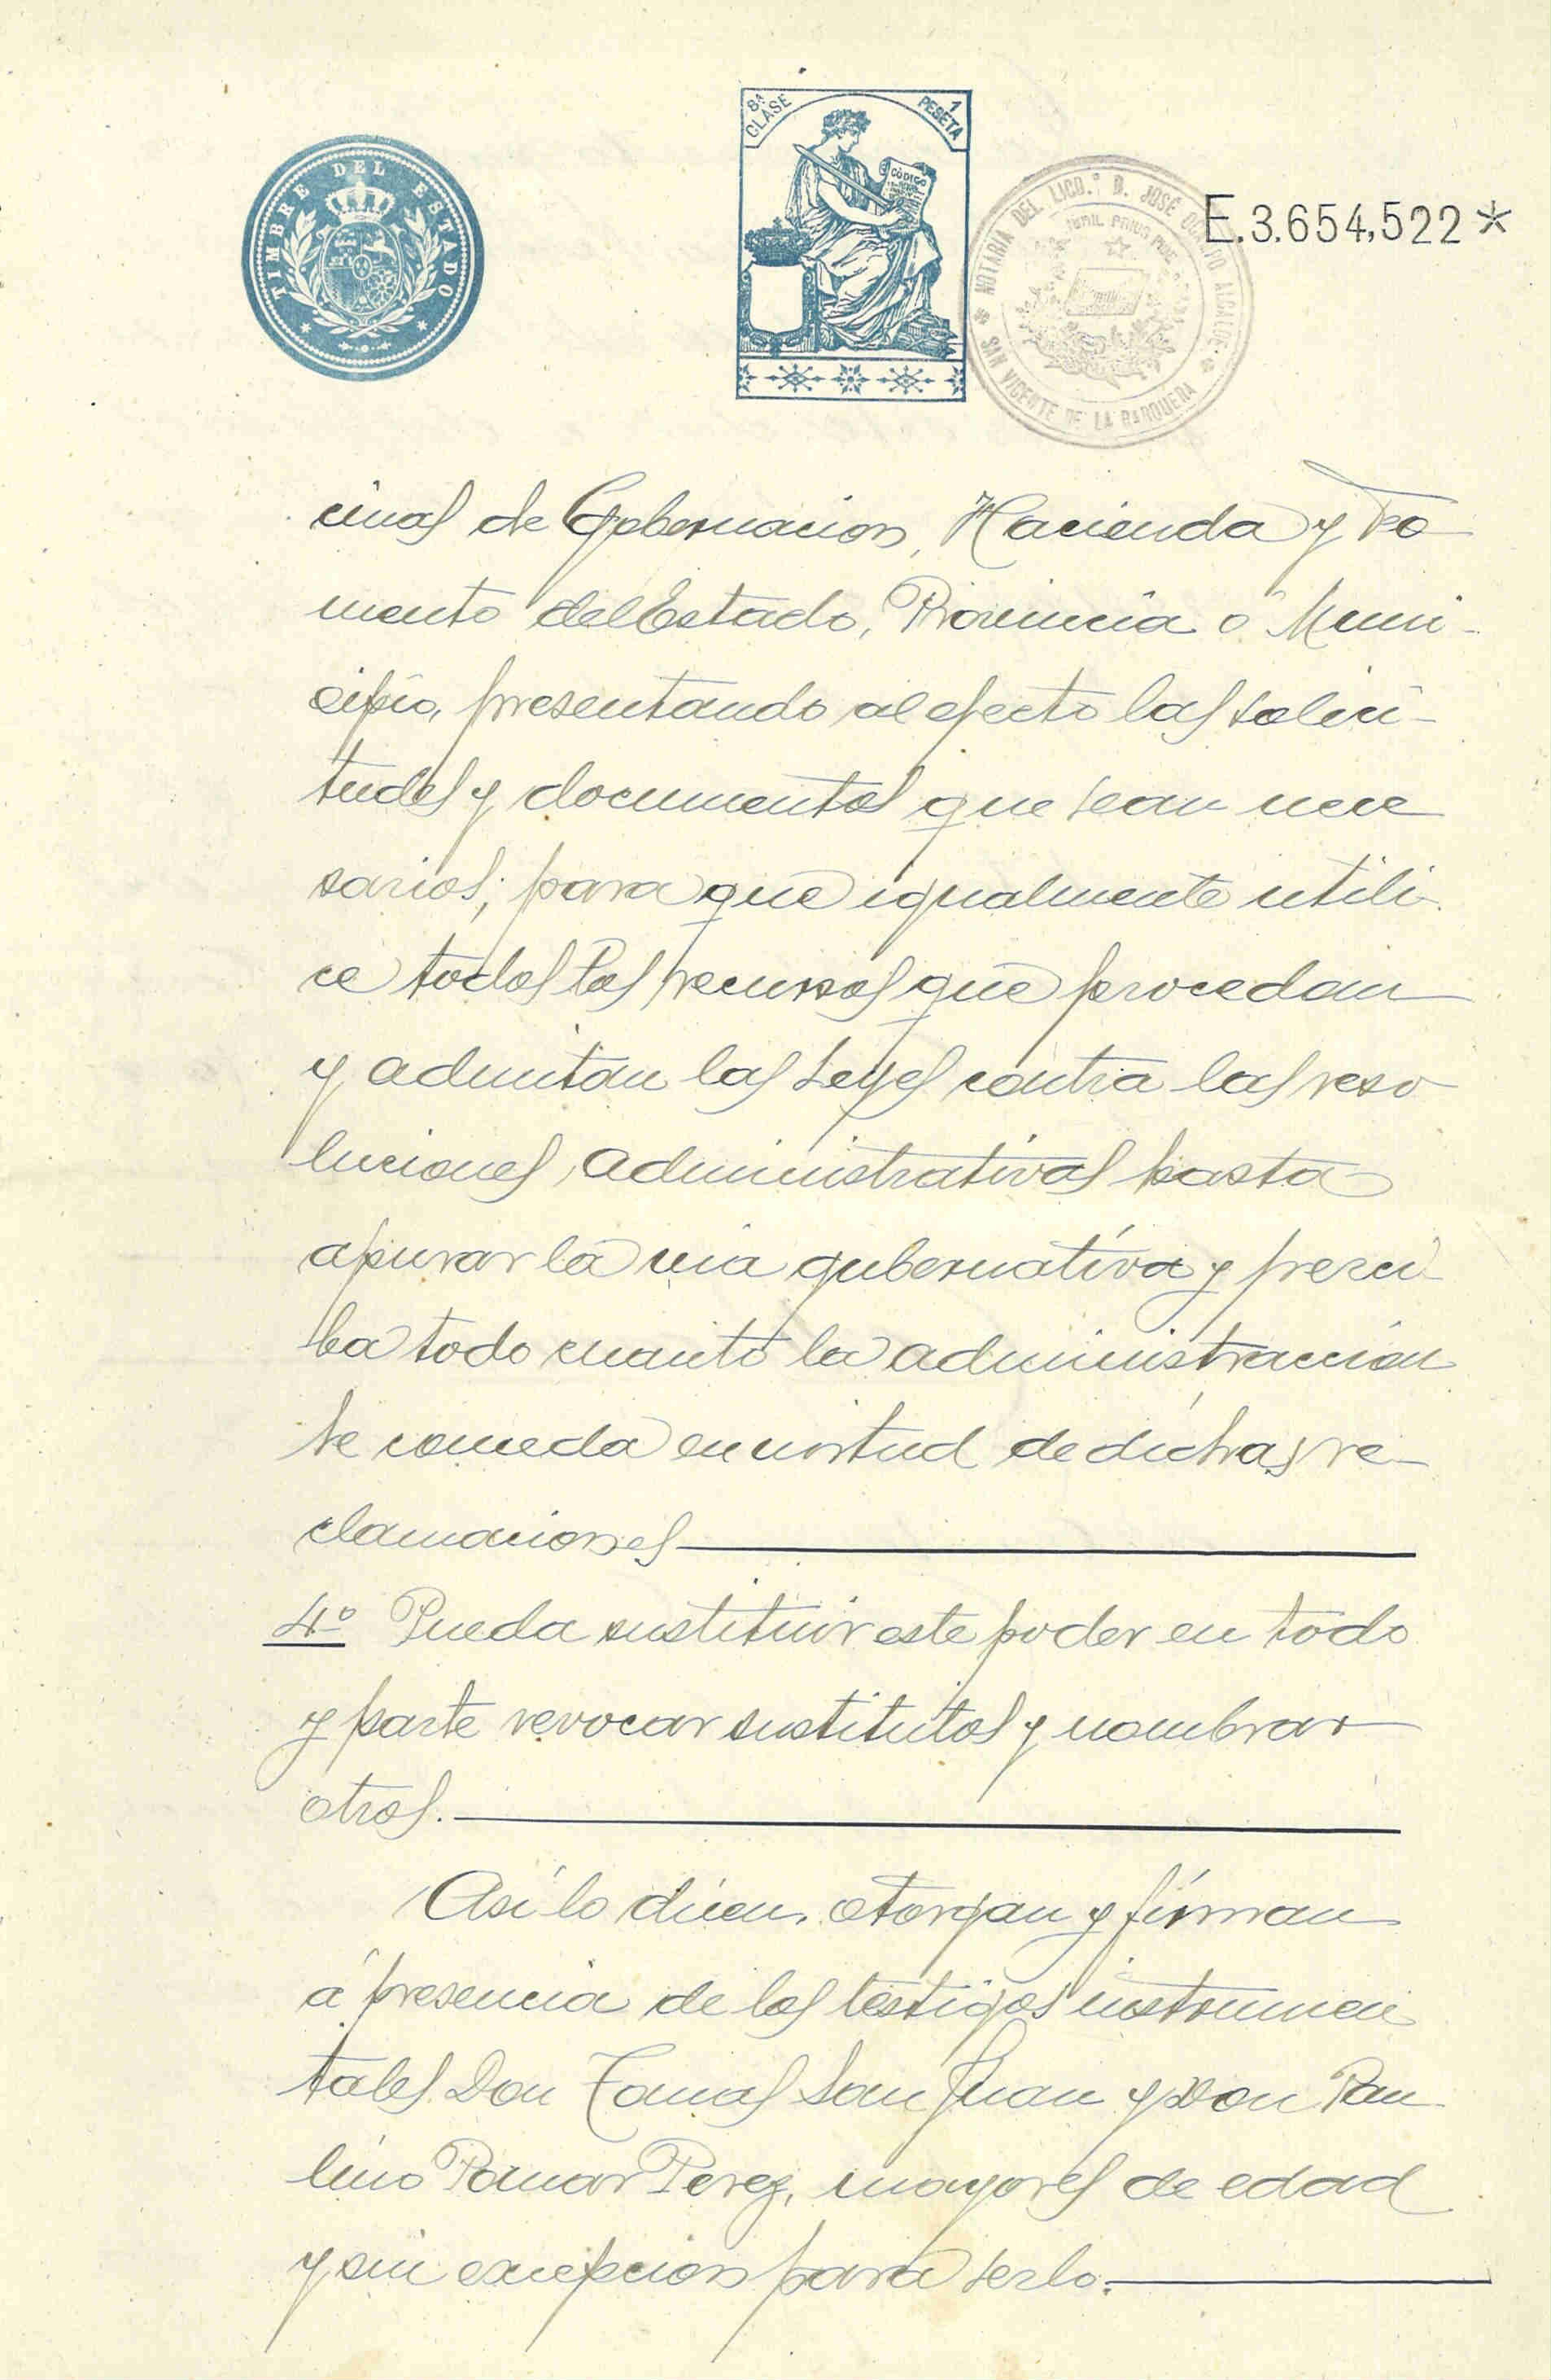 TIMBRE DEL ESTADO
8ª CLASE
1 PESETA
CÓDIGO
NOTARIA DEL LICD.º D. JOSÉ OCAMPO ALCALDE
SAN VICENTE DE LA BARQUERA
NIHIL PRIUS FIDE
E.3.654,522*
cinas de Gobernacion, Hacienda y Fo
mento del Estado, Provincia ó Muni-
cipio, presentando al efecto las solici-
tudes y documentos que sean nece
sarios; para que igualmente utili-
ce todos los recursos que procedan
y admitan las Leyes contra las reso
luciones administrativas hasta
apurar la via gubernativa y perci-
ba todo cuanto la administraccion
le conceda en virtud de dichas re-
clamaciones
4º Pueda sustituir este poder en todo
y parte revocar sustitutos y nombrar
otros.
Así lo dicen, otorgan y firman
á presencia de los testigos instrumen
tales Don Tomas San Juan y Don Pau
lino Pomar Perez, mayores de edad
y sin excepcion para serlo.